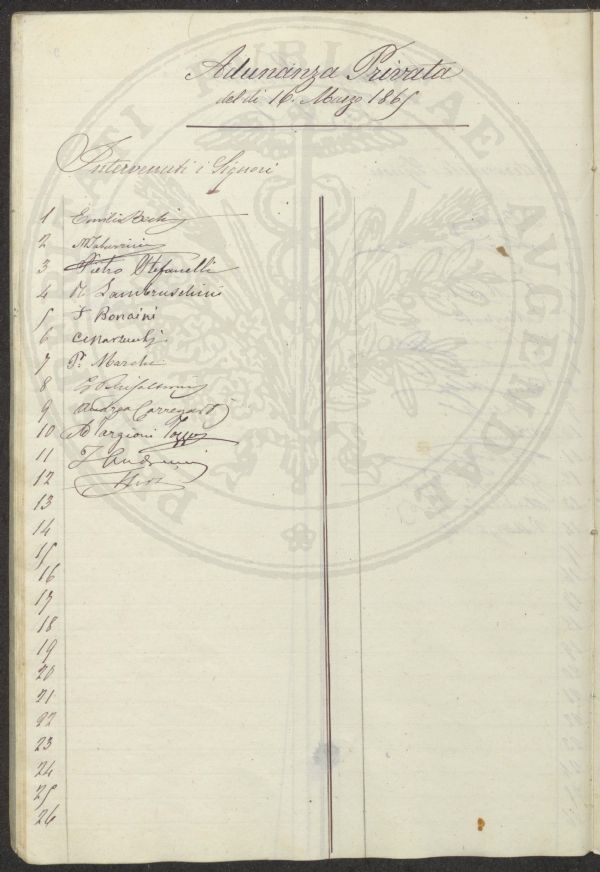 Adunanza Privata
del dì 16. Marzo 1865
Intervenuti i Signori
1 Emilio Bechi
2
3 Pietro Stefanelli
4 R Lambruschini
5 F Bonaini
6
7 P. Marchi
8
9 Andrea Carregari
10 A Targioni Tozzi
11
12
13
14
15
16
17
18
19
20
21
22
23
24
25
26
PROSPERITATI PUBLICAE AUGENDAE